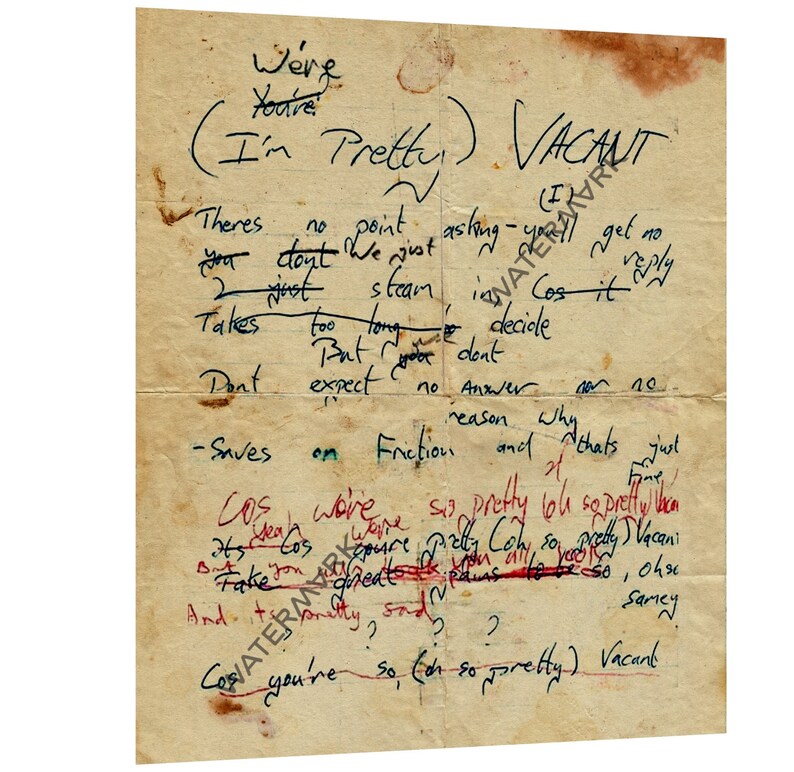 We're
You're
(I'm Pretty) VACANT
(I)
Theres no point asking - you'll get no
reply
you dont We just
I just steam in Cos it
Takes too long to decide
But you dont
Dont expect no Answer nor no
reason why
- Saves on Friction and thats just
Fine
Cos we're so pretty (oh so pretty) Vacan
yeah we're
Its Cos you're pretty (oh so pretty) Vacan
But you
Take great pains to be so, oh so
samey
And its pretty sad
? ? ?
Cos you're so, (oh so pretty) Vacant
WATERMARK
WATERMARK